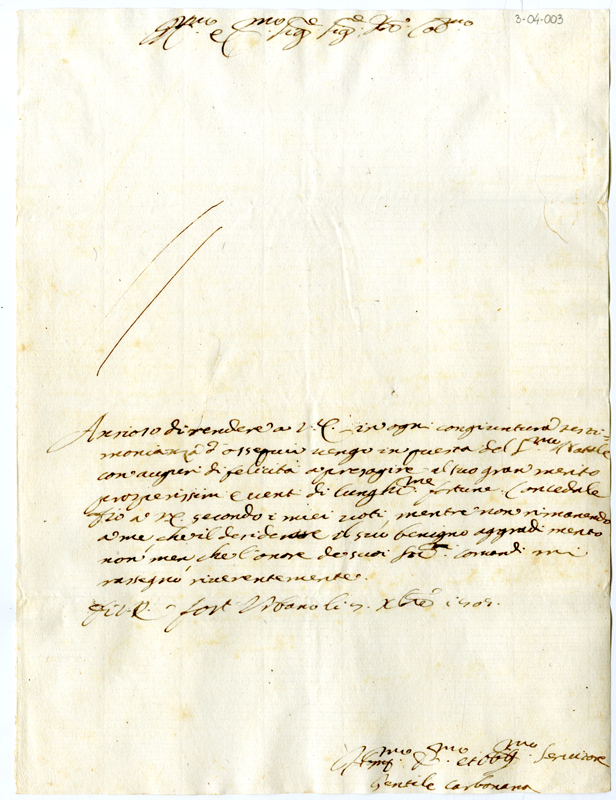 3-04-003
Ill.mo e mo Sig.e Sig.e
Ansioso di rendere a V.E. in ogni congiuntura testi-
monianza d'ossequio vengo in questa del S.mo Natale
con auguri di felicità a presagire al suo gran merito
prosperissimi eventi di lunghis.me fortune. Concedale
Dio a VE secondo i miei voti mentre non rimanendo
a me che il desiderare il suo benigno aggradimento
non men che l'onore de suoi comandi mi
rassegno riverentemente.
Di V.E. Fort Urbano li Xbre
mo mo et mo Servitore
Gentile Carbonara